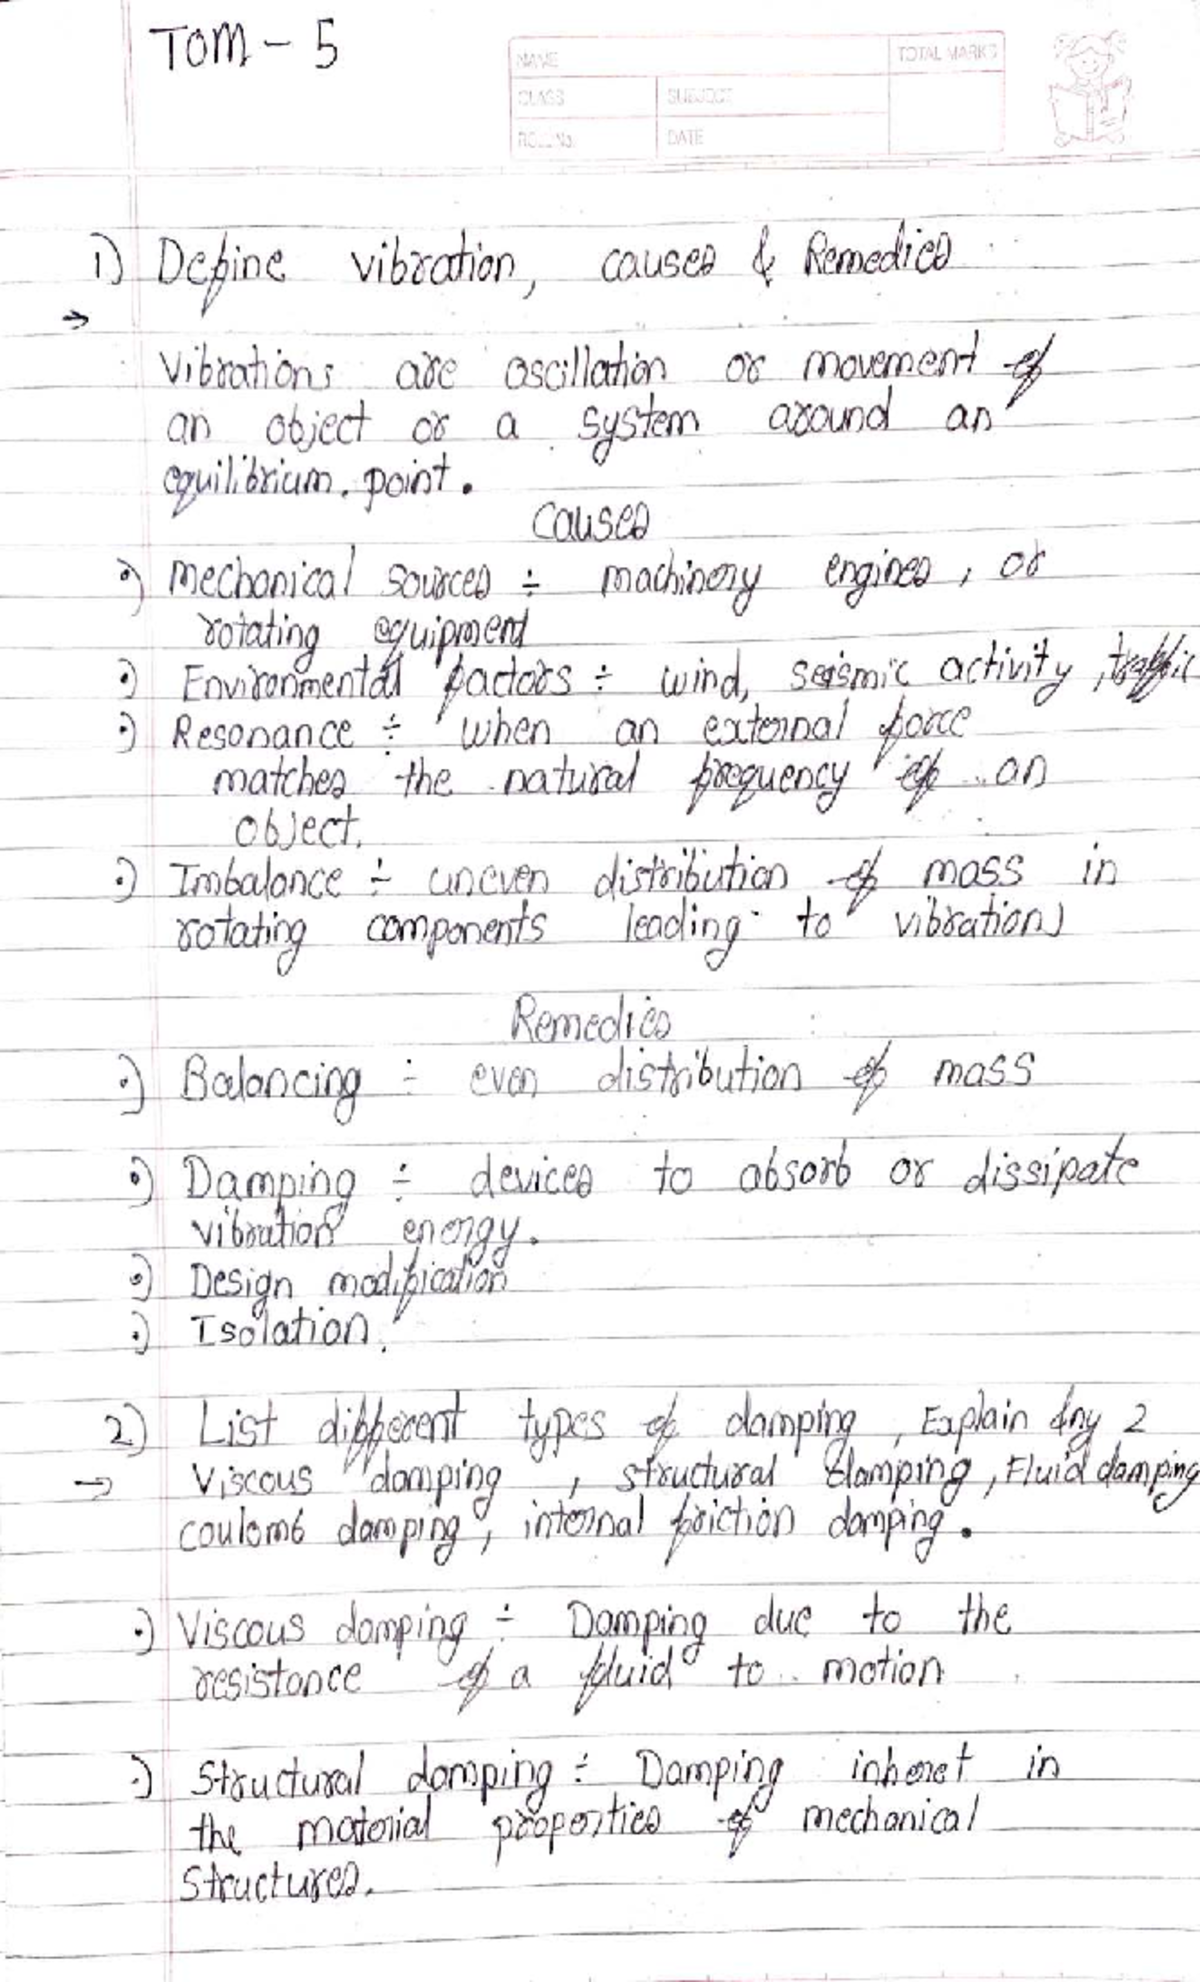 TOM - 5
NAME
TOTAL MARKS
CLASS
SUBJECT
ROLL No.
DATE
1) Define vibration, causes & Remedies
→
Vibrations are oscillation or movement of
an object or a system around an
equilibrium. point.
Causes
•) Mechanical sources ÷ machinery engines, or
rotating equipment
•) Environmental factors ÷ wind, seismic activity, traffic
•) Resonance ÷ when an external force
matches the natural frequency of an
object.
•) Imbalance ÷ uneven distribution of mass in
rotating components leading to vibrations
Remedies
•) Balancing ÷ even distribution of mass
•) Damping ÷ devices to absorb or dissipate
vibration energy.
•) Design modification
•) Isolation.
2) List different types of damping, Explain Any 2
→ Viscous damping, structural damping, Fluid damping
coulomb damping, internal friction damping.
•) Viscous damping ÷ Damping due to the
resistance of a fluid to motion
•) Structural damping ÷ Damping inheret in
the material properties of mechanical
structures.